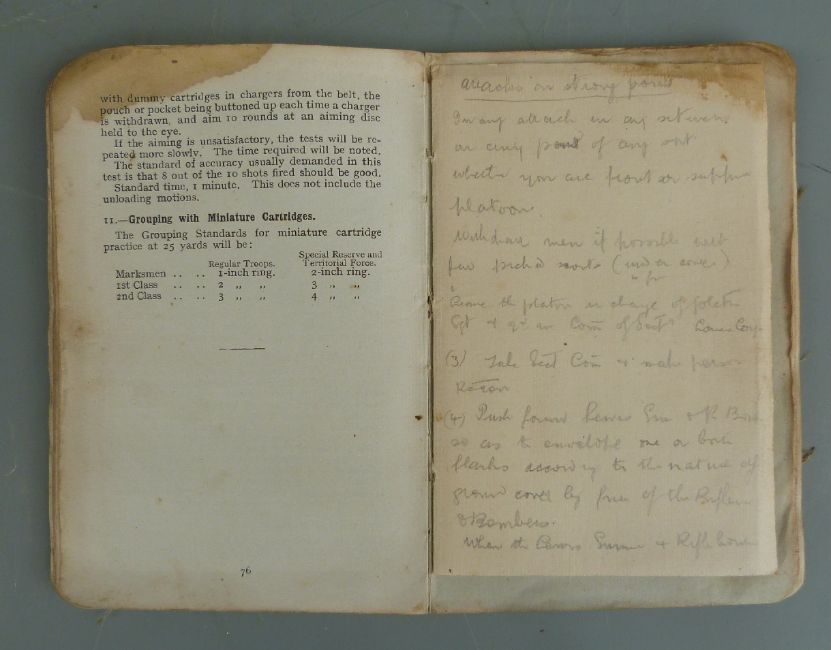 with dummy cartridges in chargers from the belt, the
pouch or pocket being buttoned up each time a charger
is withdrawn, and aim 10 rounds at an aiming disc
held to the eye.
If the aiming is unsatisfactory, the tests will be re-
peated more slowly. The time required will be noted.
The standard of accuracy usually demanded in this
test is that 8 out of the 10 shots fired should be good.
Standard time, 1 minute. This does not include the
unloading motions.
11.—Grouping with Miniature Cartridges.
The Grouping Standards for miniature cartridge
practice at 25 yards will be:
Regular Troops. Special Reserve and Territorial Force.
Marksmen .. .. 1-inch ring. 2-inch ring.
1st Class .. .. 2 ,, ,, 3 ,, ,,
2nd Class .. .. 3 ,, ,, 4 ,, ,,
76
attacks on strong point
In any attack in any
on any point of any sort
whether you are front or
platoon.
Withdraw men if possible
(under cover)
the platoon in charge of platoon
Sgt + Com of Sect
(3) Take Sect Com + make
(4) Push forward Lewis Gun & R
so as to envelope one or both
flanks according to the nature of
ground cover by fire of the
& Bombers.
When the Lewis + Rifle